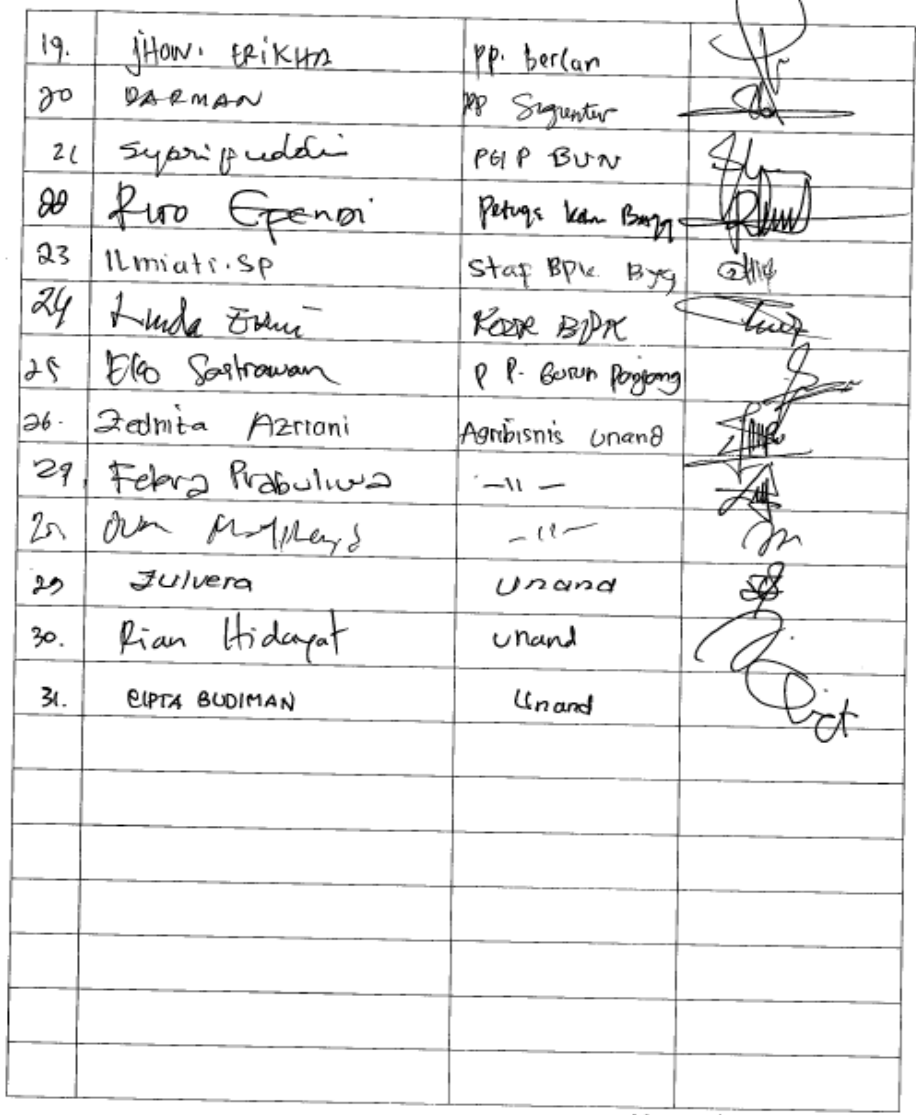 19. JHON. ERIKHA PP. berlan
20 DARMAN PP
21 Syaripuddin PGI P BUN
22 Riro Ependi Petugs kam
23 ILmiati.SP Staf BPK Byg
24 Linda BPK
25 Eko Sastrawan P P. Gunun
26. Zednita Azriani Agribisnis Unand
27 Febra -11-
28 -11-
29 Zulvera Unand
30. Rian Hidayat Unand
31. CIPTA BUDIMAN Unand